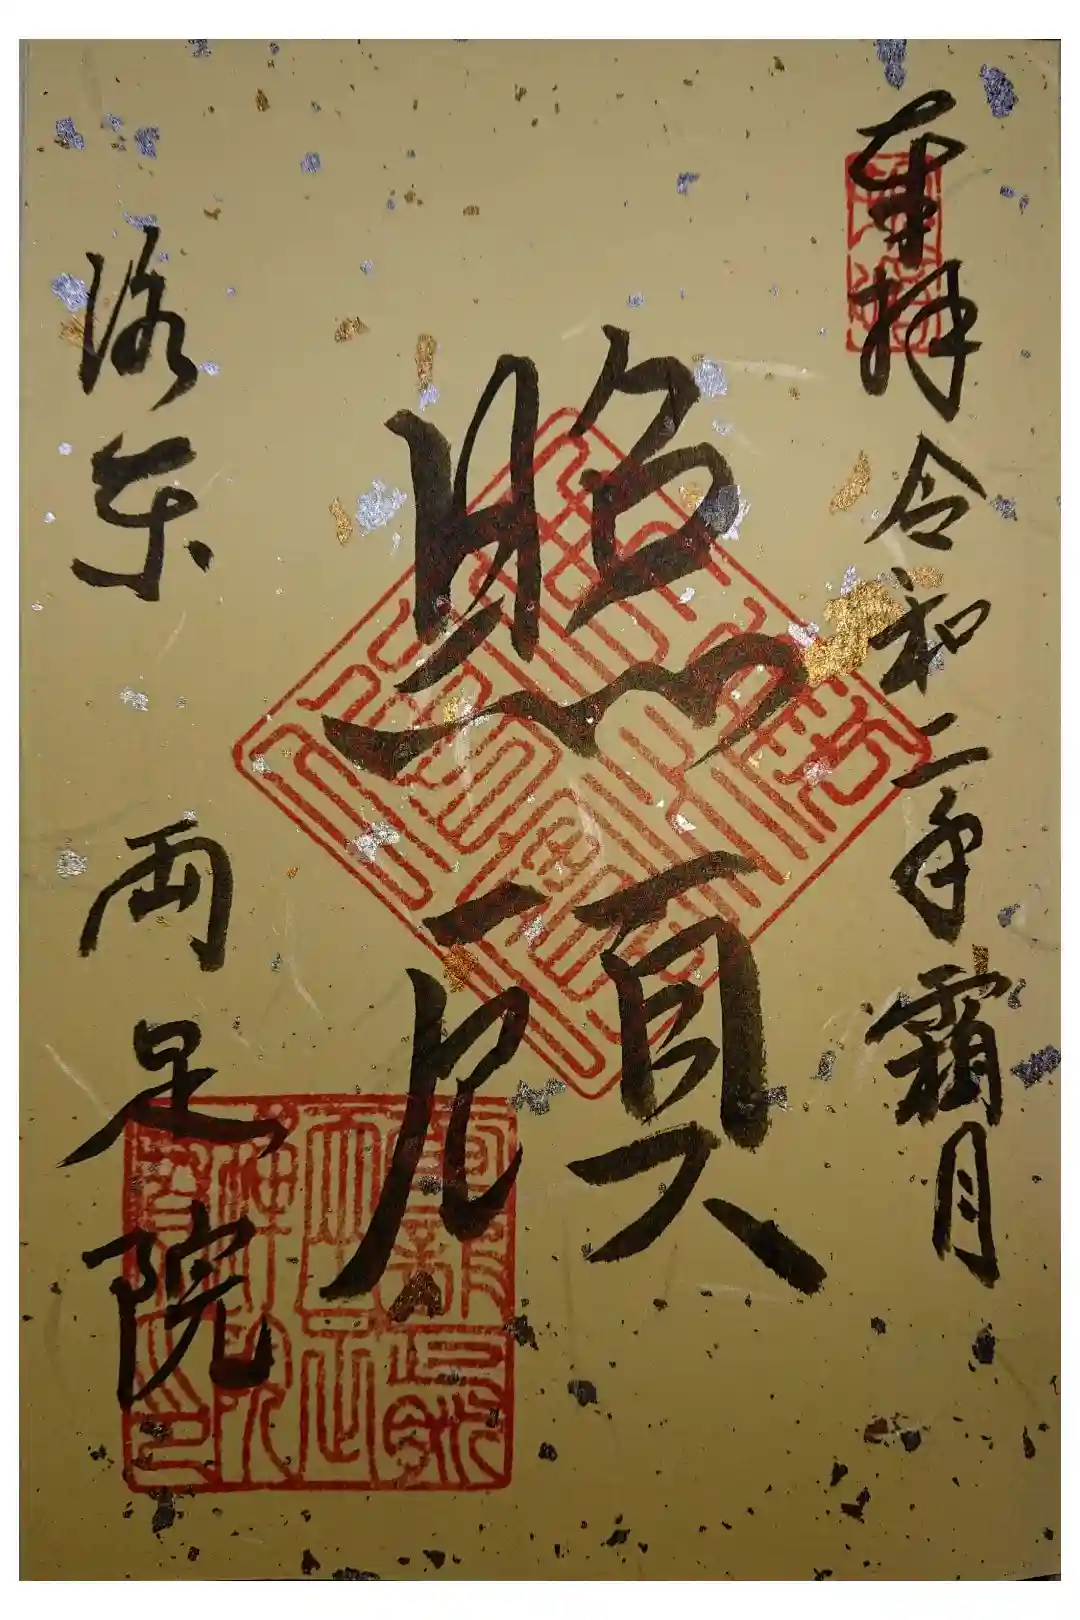 奉拝 令和二年霜月
照顧
洛東 両足院